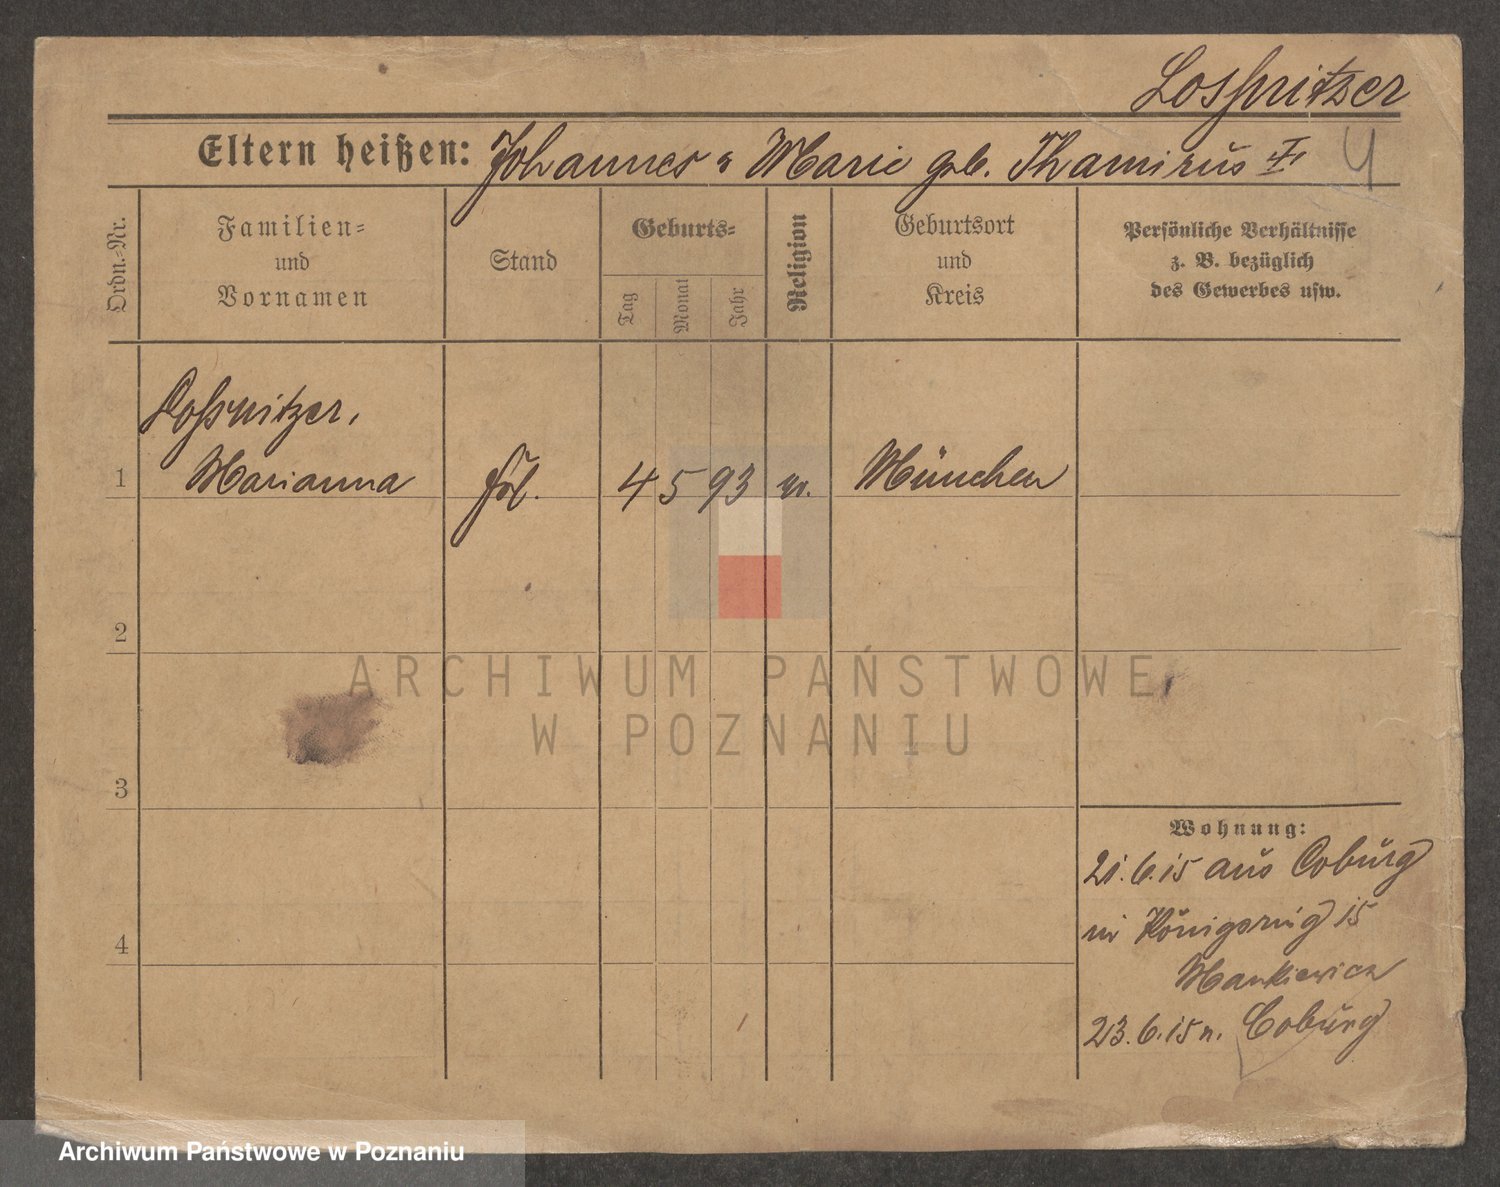 Lossnitzer
Eltern heißen: Johannes u Marie geb. Thamirus
4
Ordn.-Nr.
Familien-
und
Vornamen
Stand
Geburts-
Tag
Monat
Jahr
Religion
Geburtsort
und
Kreis
Persönliche Verhältnisse
z. B. bezüglich
des Gewerbes usw.
Loßnitzer,
1 Marianna Frl. 4 5 93 München
2
3
4
Wohnung:
21.6.15 aus Coburg
in Königsring 15
Mankiewicz
23.6.15 n. Coburg
ARCHIWUM PAŃSTWOWE
W POZNANIU
Archiwum Państwowe w Poznaniu